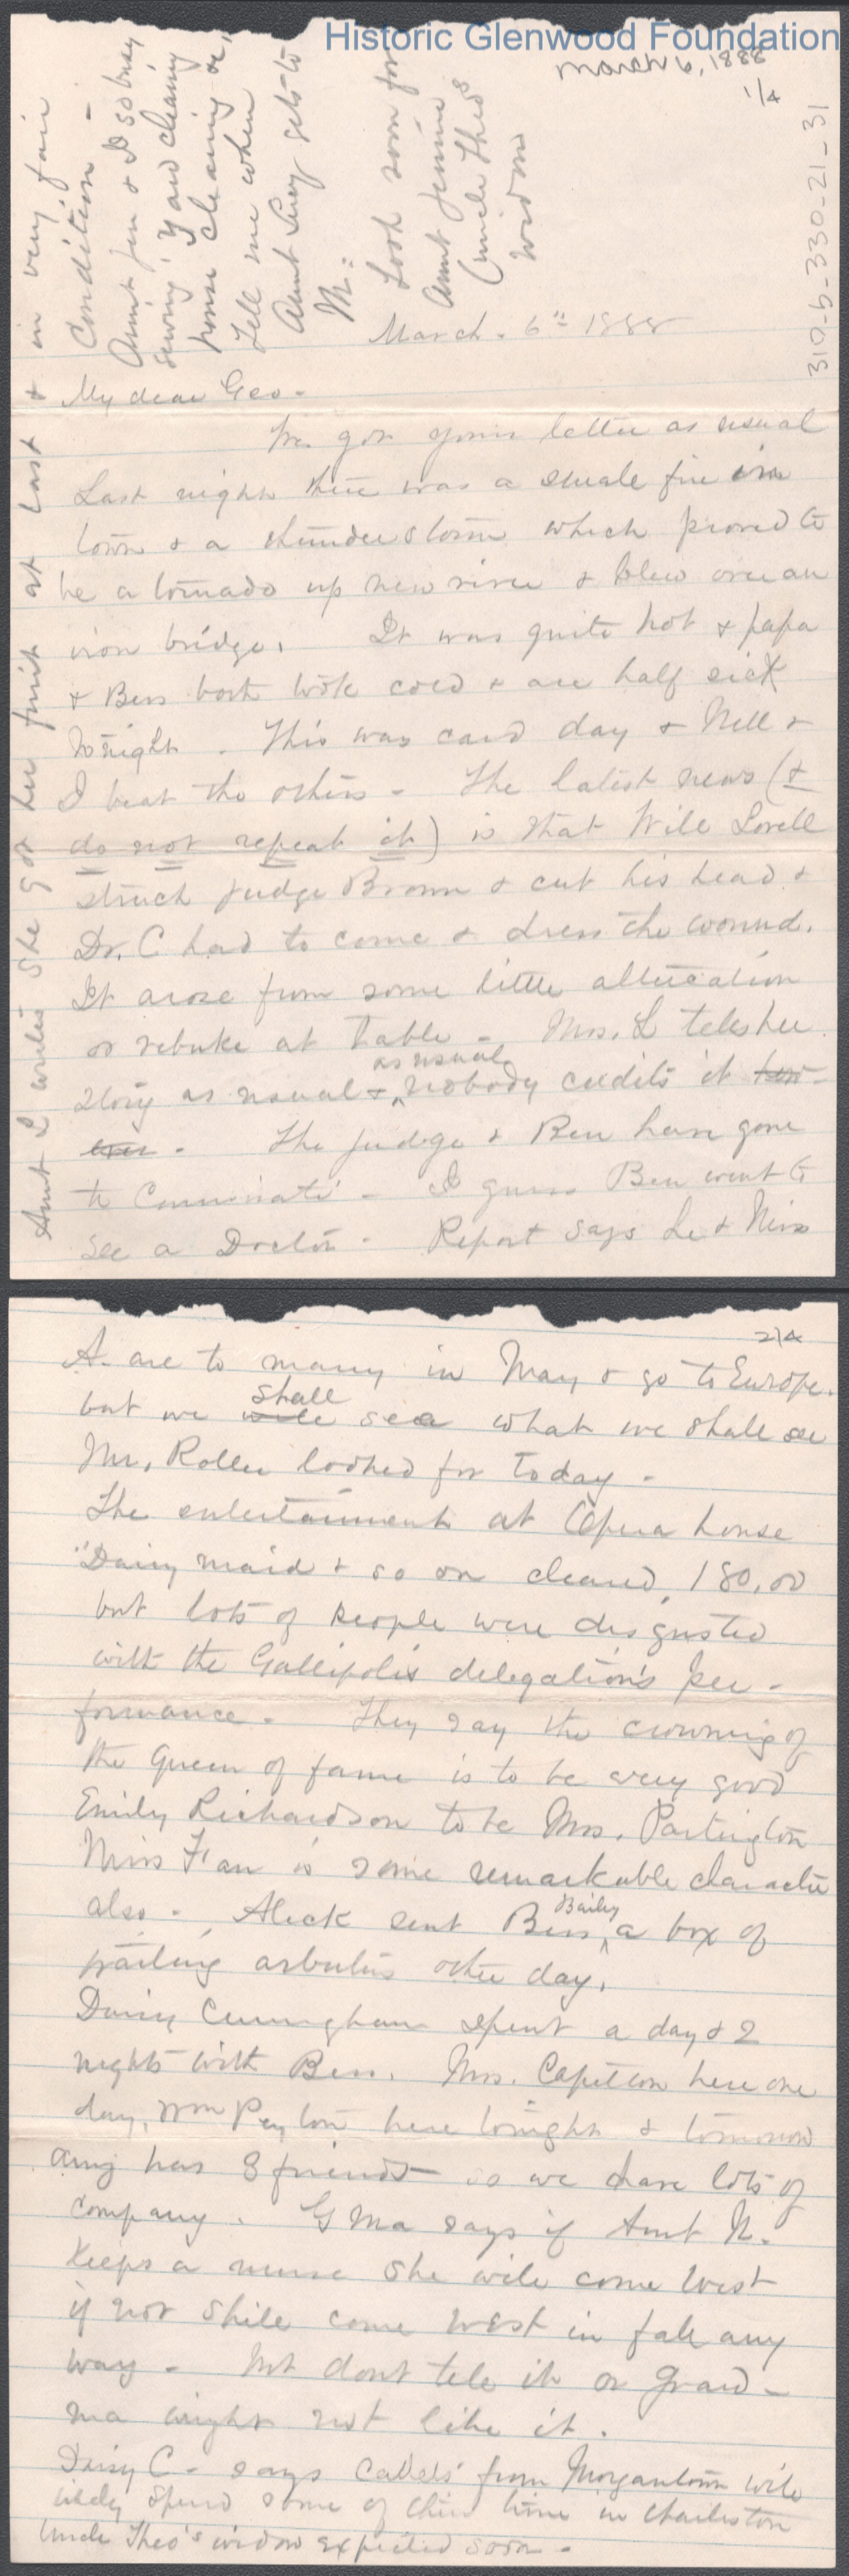 Historic Glenwood Foundation
March 6, 1888
1/4
310-6-330-21-31
Aunt L writes she got her fruit at last & in very fair
condition -
Aunt Jen & I so busy
sewing, yard cleaning
house cleaning &c,
Tell me when
Aunt Lucy gets to
M:
Look soon for
Aunt Jennie
Uncle Theo's
widow
March. 6th 1888
My dear Geo.
We got your letter as usual
Last night there was a small fire in
town & a thunder storm which proved to
be a tornado up new river & blew over an
iron bridge. It was quite hot & papa
& Bess both took cold & are half sick
tonight. This was card day & Nell &
I beat the others - The latest news (&
do not repeat it) is that Will Lovell
struck judge Brown & cut his head &
Dr. C had to come & dress the wound.
It arose from some little altercation
or rebuke at table - Mrs. L tells her
as usual
story as usual & nobody credits it
. The judge & Ben have gone
to Cincinnati - I guess Ben went to
see a Doctor. Report says he & Miss
2/4
A. are to marry in May & go to Europe.
shall
but we will see what we shall see
Mr. Roller looked for today -
The entertainment at Opera house
"Dairy maid & so on cleared 180,00
but lots of people were disgusted
with the Gallipolis delegation's per-
formance - They say the crowning of
the Queen of fame is to be very good
Emily Richardson to be Mrs. Partington
Miss Fan is some remarkable character
also - Aleck sent Bess a box of
Baily
trailing arbutus other day.
Daisy Cunningham spent a day & 2
nights with Bess. Mrs. Capeton here one
day, Wm Peyton here tonight & tomorrow
Amy has 8 friends so we have lots of
company. G Ma says if Aunt N.
keeps a nurse she will come West
if not she'll come West in fall any
way - but dont tell it or Grand-
ma might not like it.
Daisy C - says Cadets from Morgantown will
likely spend some of their time in Charleston
Uncle Theo's widow expected soon -